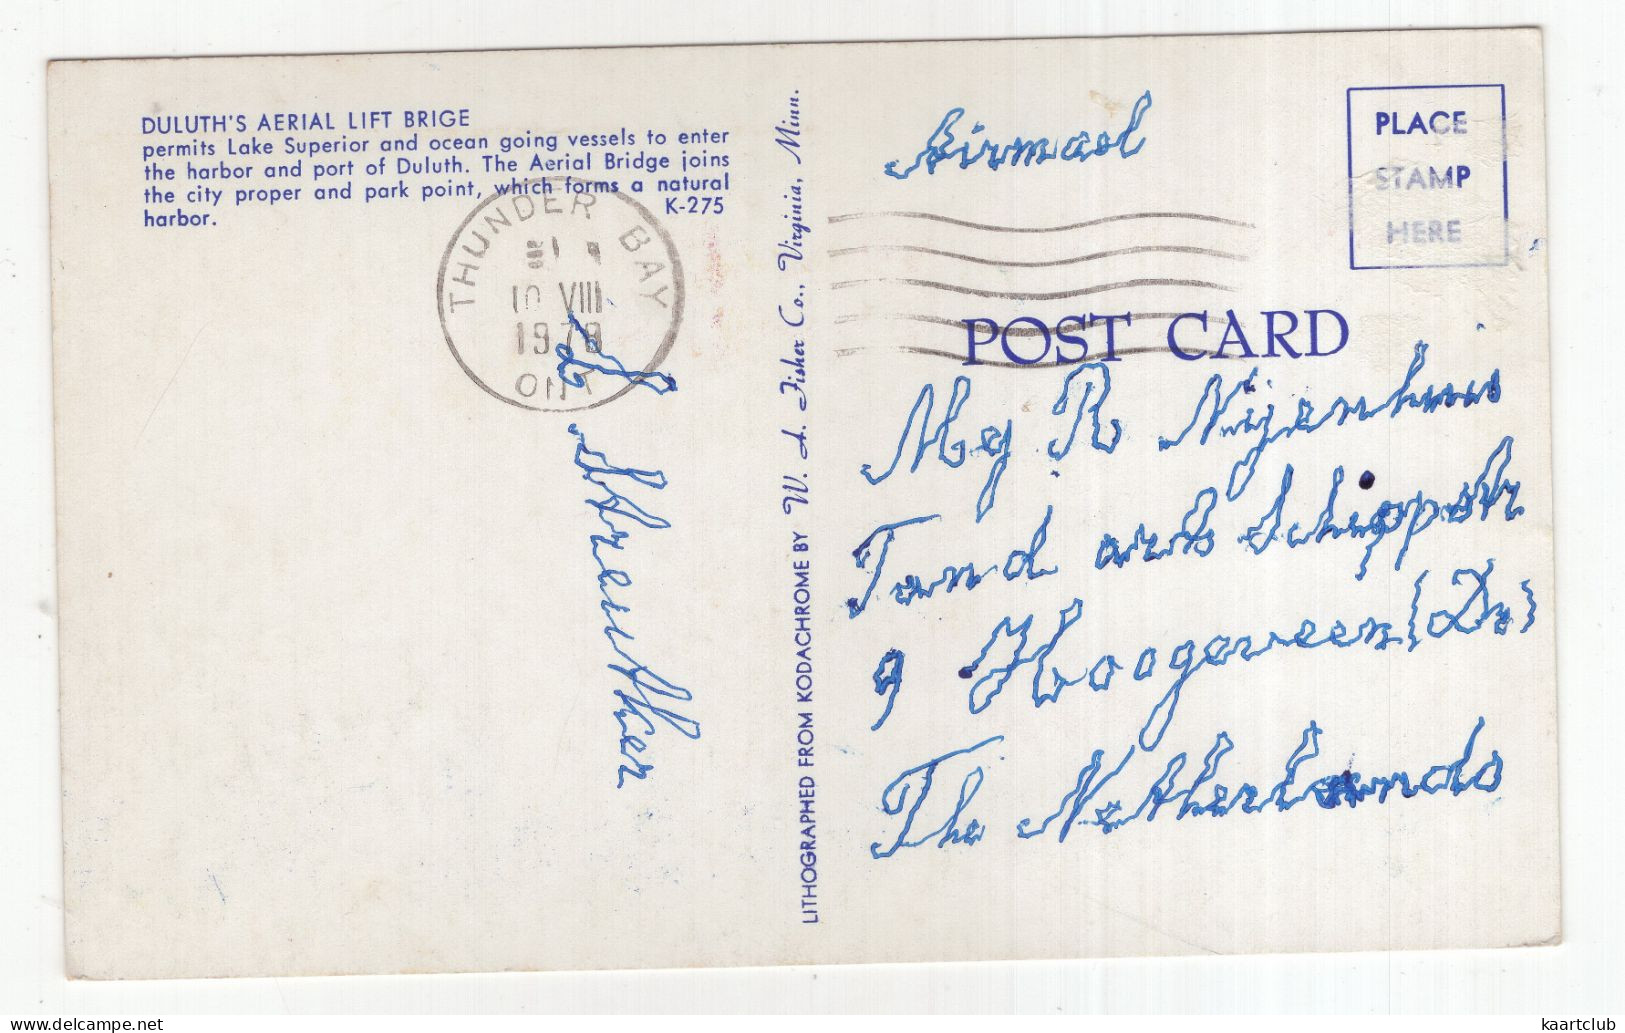 DULUTH'S AERIAL LIFT BRIGE
permits Lake Superior and ocean going vessels to enter
the harbor and port of Duluth. The Aerial Bridge joins
the city proper and park point, which forms a natural
harbor.
K-275
THUNDER BAY
10 VIII
1978
ONT
LITHOGRAPHED FROM KODACHROME BY W. A. Fisher Co., Virginia, Minn.
PLACE
STAMP
HERE
POST CARD
R Nijenhuis
9 Hoogeveen (Dr)
The Netherlands
kaartclub